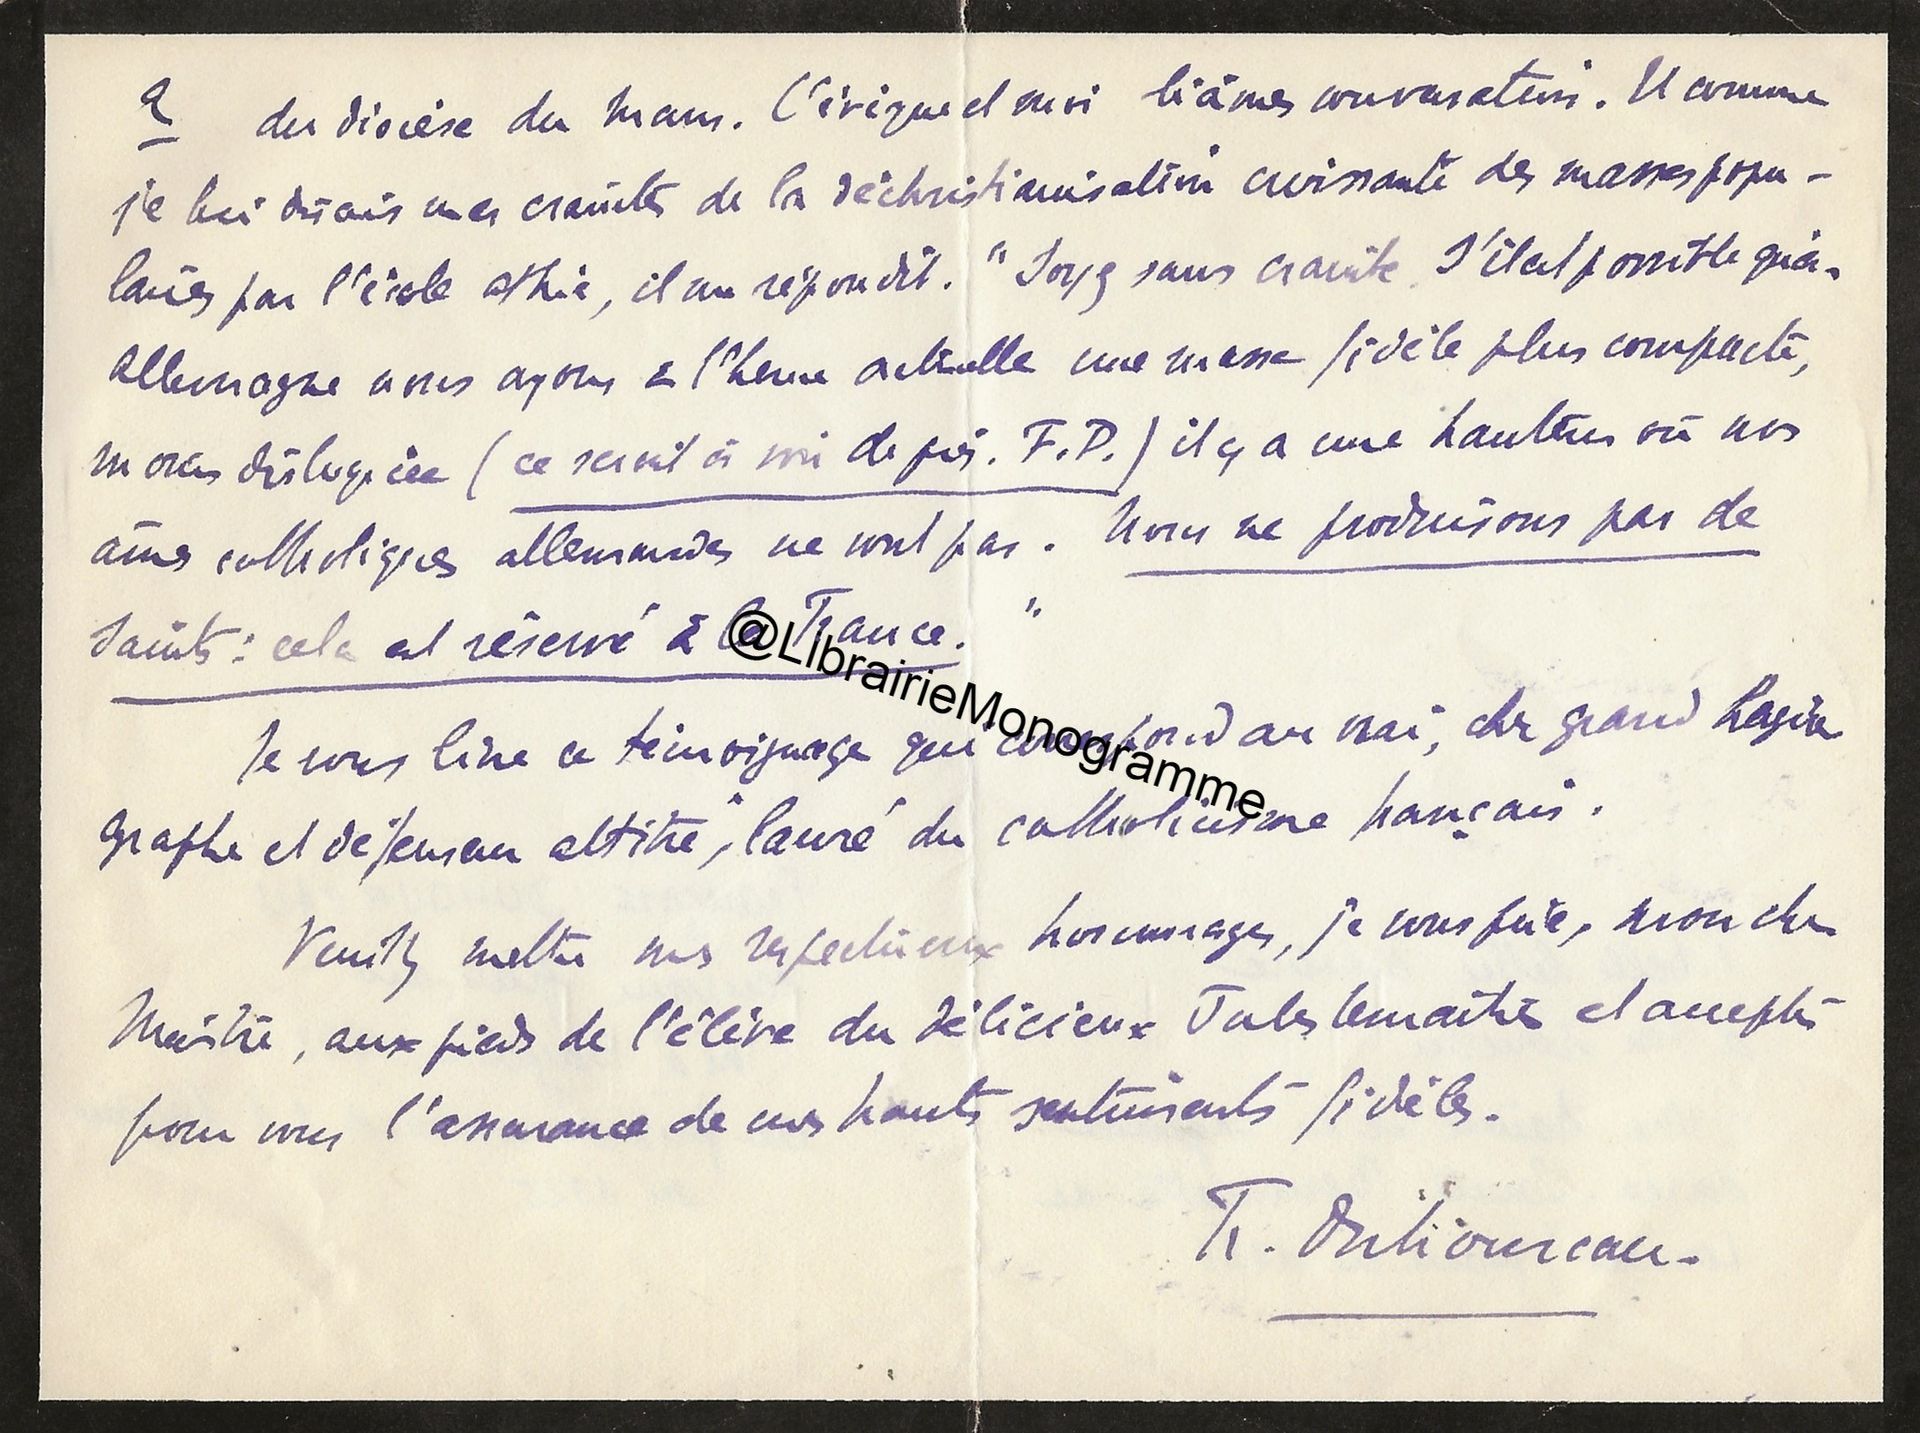 2 du diocèse du Mans. L'évêque et moi liâmes conversation. Et comme
je lui disais mes craintes de la déchristianisation croissante des masses popu-
laires par l'école athée, il me répondit. "Soyez sans crainte. S'il est possible qu'en
Allemagne nous ayons à l'heure actuelle une masse fidèle plus compacte,
moins disloquée (ce serait à voir de près. F.D.) il y a une hauteur où nos
âmes catholiques allemandes ne vont pas. Nous ne produisons pas de
Saints : cela est réservé à la France."
Je vous livre ce témoignage qui correspond au vrai, cher grand hagio
graphe et défenseur attitré, lauré du catholicisme français.
Veuillez mettre mes respectueux hommages, je vous prie, mon cher
Maître, aux pieds de l'élève du délicieux Jules Lemaître et accepter
pour vous l'assurance de mes hauts sentiments fidèles.
@LibrairieMonogramme